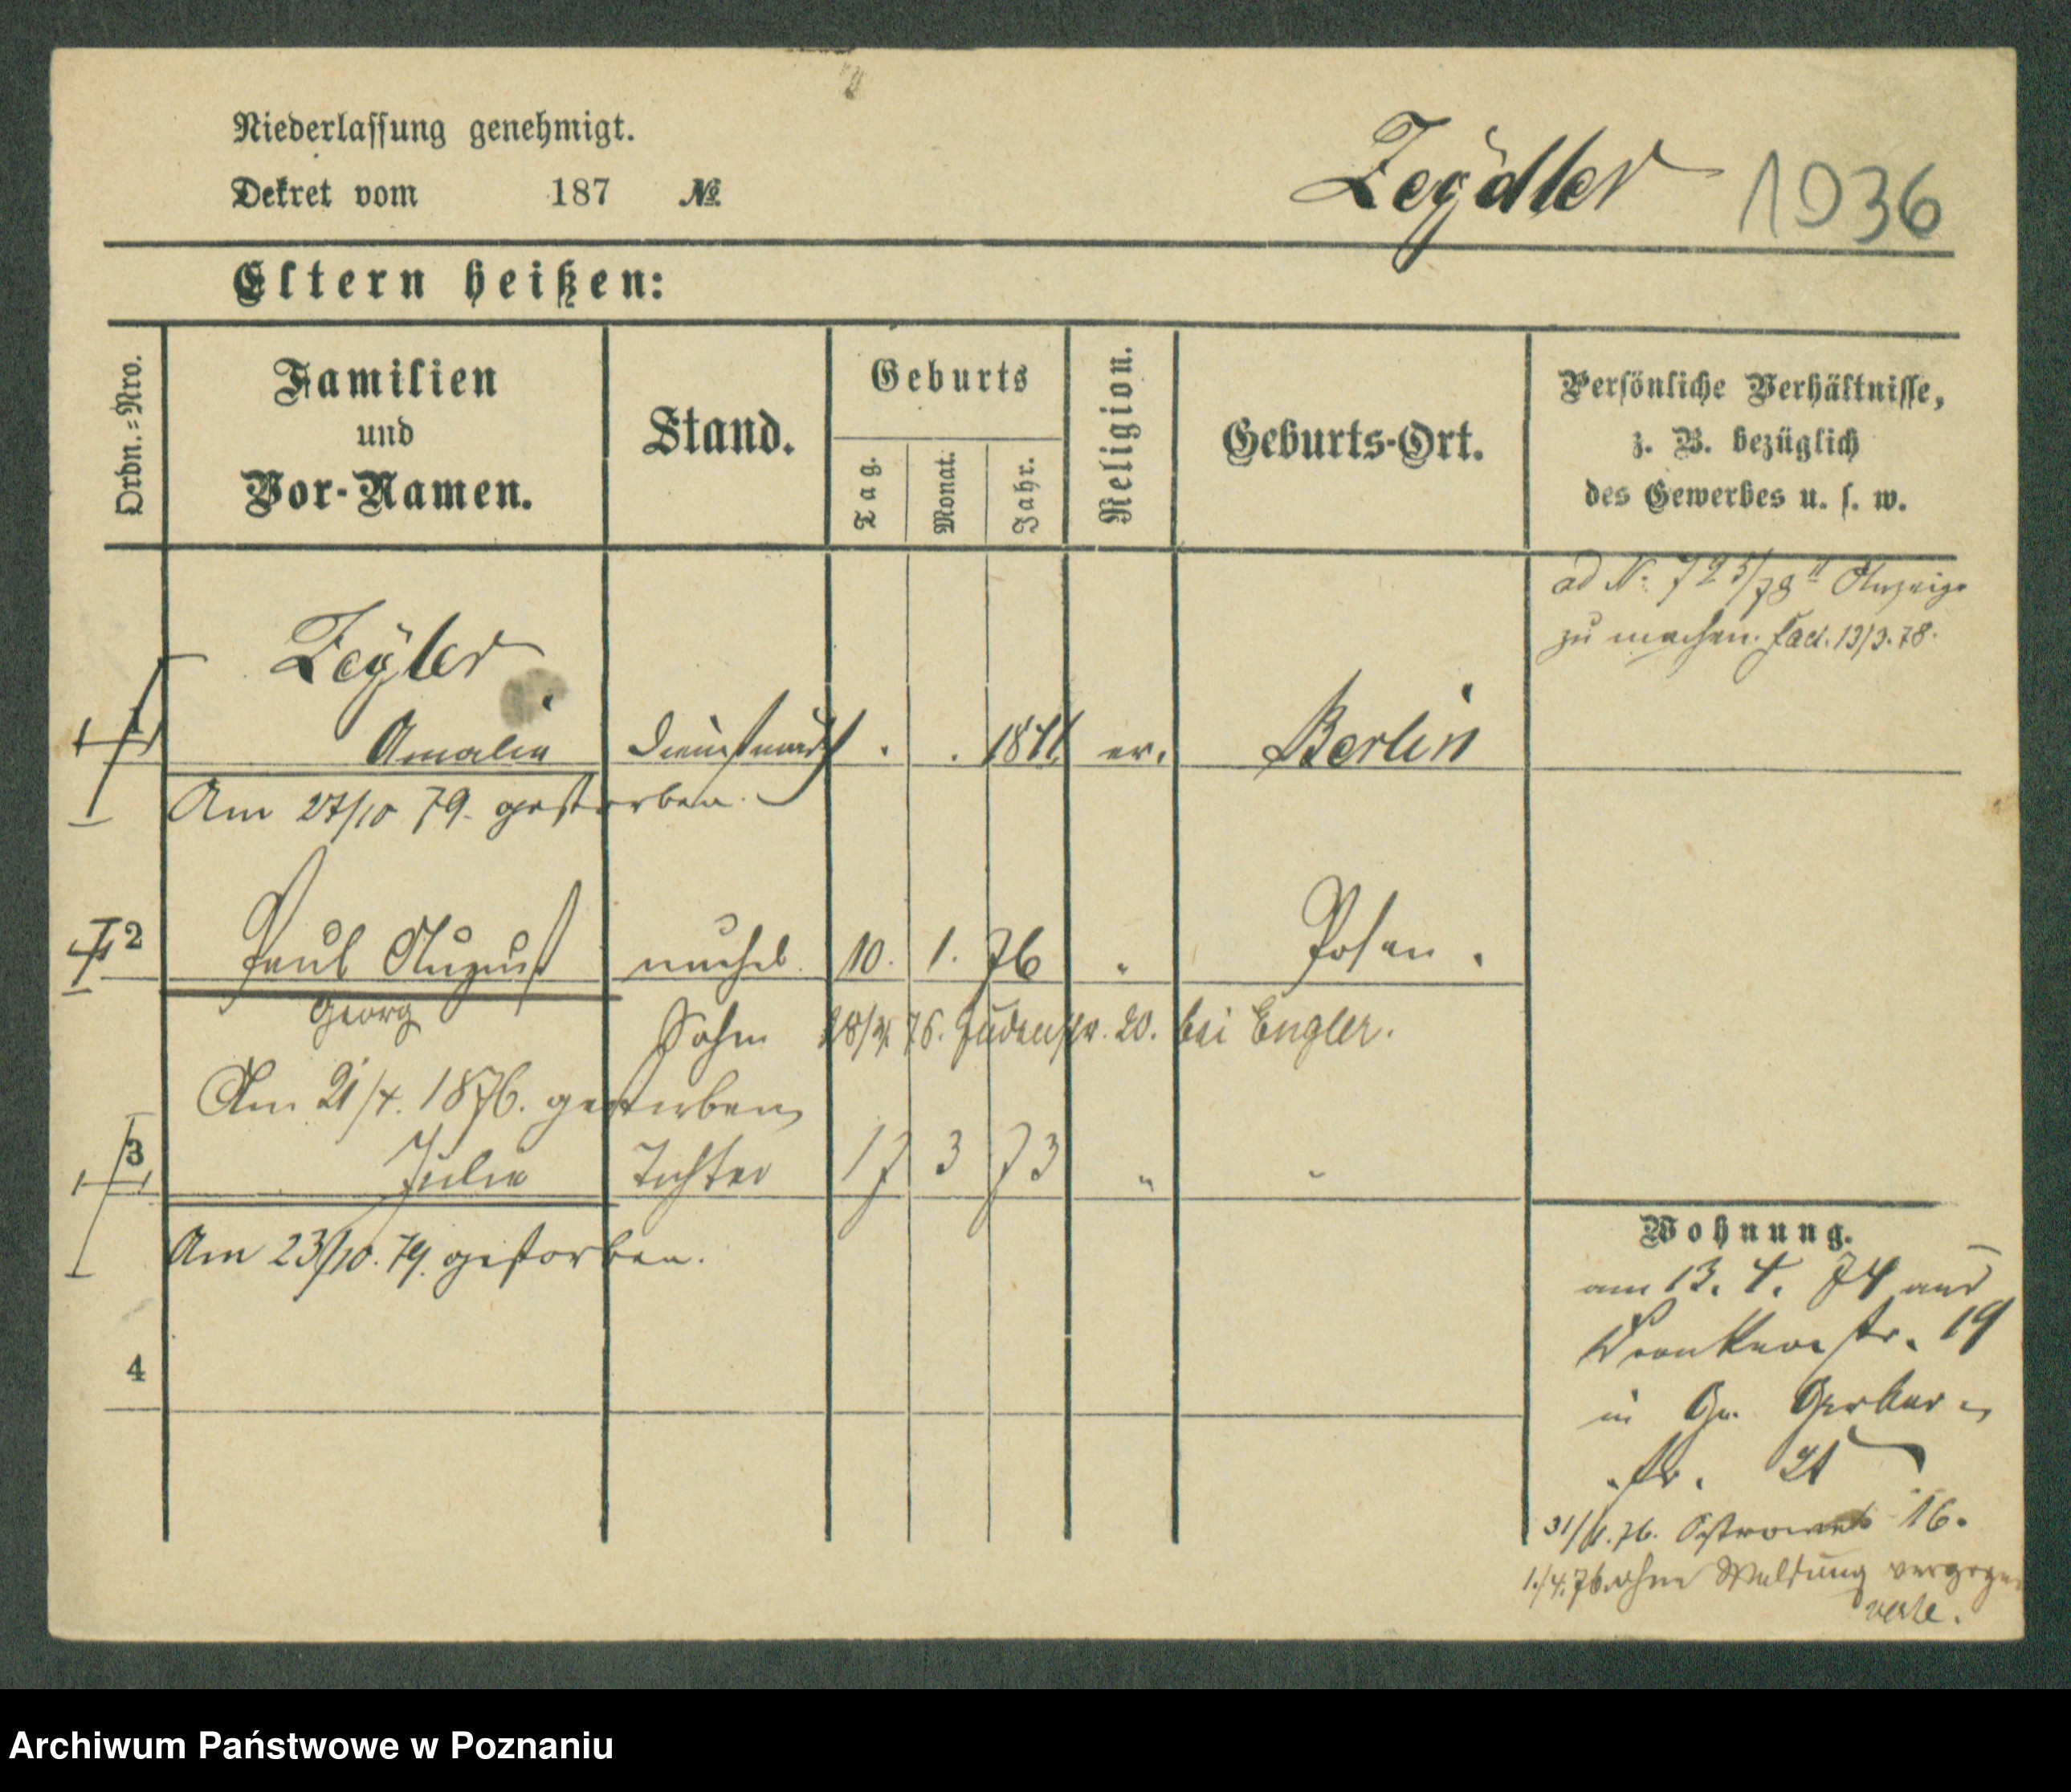 Niederlassung genehmigt.
Dekret vom 187 №
Zeydler 1036
Eltern heißen:
Ordn.=Nro.
Familien
und
Vor-Namen.
Stand.
Geburts
Tag.
Monat.
Jahr.
Religion.
Geburts-Ort.
Persönliche Verhältnisse,
z. B. bezüglich
des Gewerbes u. s. w.
ad N. 725/78 Anzeige
zu machen. 13/3.78.
Zeyler
Amalie Dienstmagd ev. Berlin
Am 27/10 79. gestorben.
2 Paul August unehel. 10. 1. 76 " Posen.
Georg
Sohn 76. Judenstr. 20. bei Engler.
Am 21/4. 1876. gestorben
3 Julie Tochter 17 3 73 "
Am 23/10. 79. gestorben.
4
Wohnung.
am 13. 4. 74 aus
Wronkerstr. 19
in Gr. Gerber
str. 21
Ostrowek 16.
1./4.76. ohne Meldung
Archiwum Państwowe w Poznaniu